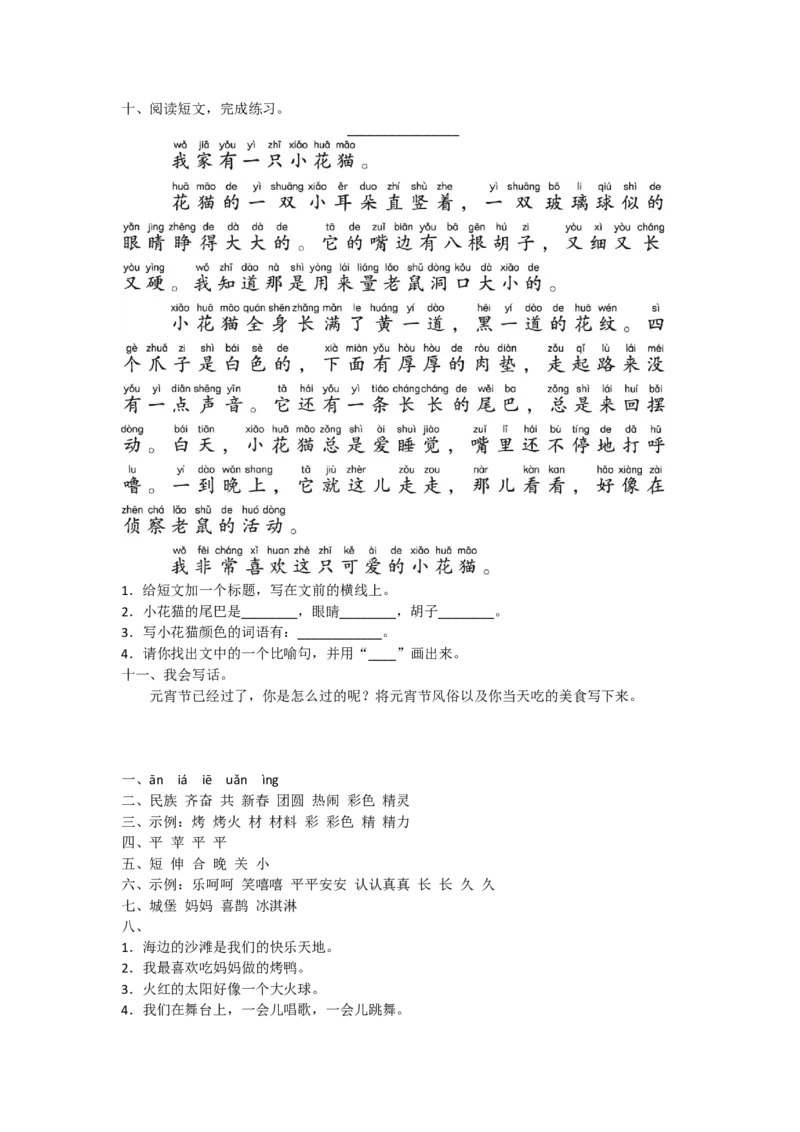 十、阅读短文，完成练习。
________________
wǒ jiā yǒu yì zhī xiǎo huā māo
我家有一只小花猫。
huā māo de yì shuāng xiǎo ěr duo zhí shù zhe yì shuāng bō li qiú shì de
花猫的一双小耳朵直竖着，一双玻璃球似的
yǎn jing zhēng de dà dà de tā de zuǐ biān yǒu bā gēn hú zi yòu xì yòu cháng
眼睛睁得大大的。它的嘴边有八根胡子，又细又长
yòu yìng wǒ zhī dào nà shì yòng lái liáng lǎo shǔ dòng kǒu dà xiǎo de
又硬。我知道那是用来量老鼠洞口大小的。
xiǎo huā māo quán shēn zhǎng mǎn le huáng yí dào hēi yí dào de huā wén sì
小花猫全身长满了黄一道，黑一道的花纹。四
gè zhuǎ zi shì bái sè de xià miàn yǒu hòu hòu de ròu diàn zǒu qǐ lù lái méi
个爪子是白色的，下面有厚厚的肉垫，走起路来没
yǒu yì diǎn shēng yīn tā hái yǒu yì tiáo cháng cháng de wěi ba zǒng shì lái huí bǎi
有一点声音。它还有一条长长的尾巴，总是来回摆
dòng bái tiān xiǎo huā māo zǒng shì ài shuì jiào zuǐ lǐ hái bù tíng de dǎ hū
动。白天，小花猫总是爱睡觉，嘴里还不停地打呼
lu yí dào wǎn shang tā jiù zhèr zǒu zou nàr kàn kan hǎo xiàng zài
噜。一到晚上，它就这儿走走，那儿看看，好像在
zhēn chá lǎo shǔ de huó dòng
侦察老鼠的活动。
wǒ fēi cháng xǐ huan zhè zhī kě ài de xiǎo huā māo
我非常喜欢这只可爱的小花猫。
1．给短文加一个标题，写在文前的横线上。
2．小花猫的尾巴是________，眼睛________，胡子________。
3．写小花猫颜色的词语有：____________。
4．请你找出文中的一个比喻句，并用“____”画出来。
十一、我会写话。
元宵节已经过了，你是怎么过的呢？将元宵节风俗以及你当天吃的美食写下来。
一、ān iá iē uǎn ìng
二、民族 齐奋 共 新春 团圆 热闹 彩色 精灵
三、示例：烤 烤火 材 材料 彩 彩色 精 精力
四、平 苹 平 平
五、短 伸 合 晚 关 小
六、示例：乐呵呵 笑嘻嘻 平平安安 认认真真 长 长 久 久
七、城堡 妈妈 喜鹊 冰淇淋
八、
1．海边的沙滩是我们的快乐天地。
2．我最喜欢吃妈妈做的烤鸭。
3．火红的太阳好像一个大火球。
4．我们在舞台上，一会儿唱歌，一会儿跳舞。